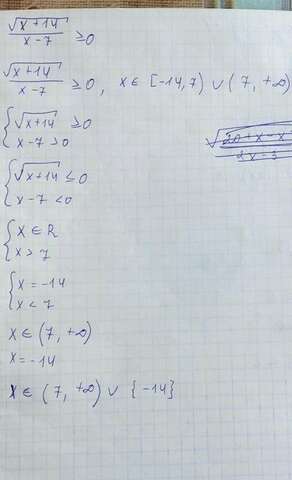 √(x+14) / (x-7) ≥0
√(x+14) / (x-7) ≥0, x ∈ [-14, 7) ∪ (7, +∞)
{ √(x+14) ≥0
x-7 >0
{ √(x+14) ≤0
x-7 <0
{ x ∈ R
x > 7
{ x = -14
x < 7
x ∈ (7, +∞)
x = -14
x ∈ (7, +∞) ∪ {-14}